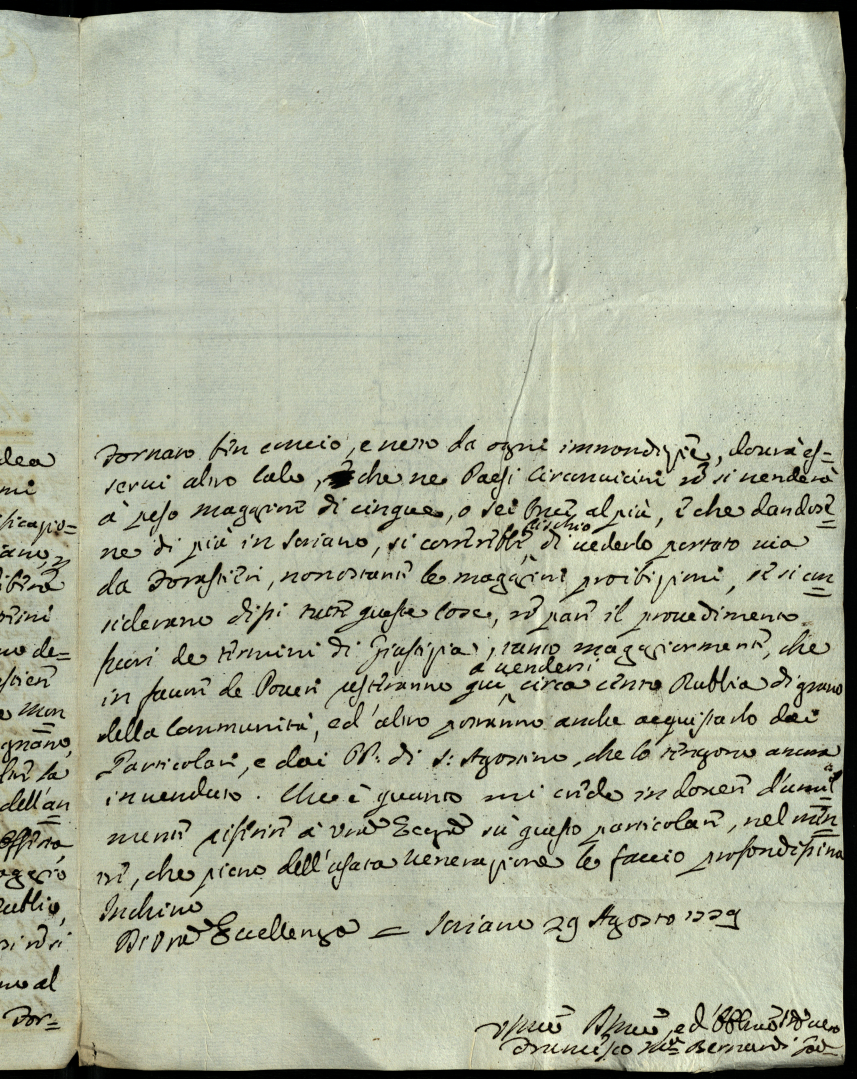 dea
mi
ficazio=
iano,
de=
Mon
gnano,
la
dell'an
Offerta,
Rublio,
al
For=
Fornaro ben concio, e neto da ogni immondizie, dourà es=
serui altro calo, che ne Paesi Circonuicini si uenderà
à peso maggiore di cinque, o sei al più, è che dandose
ne di più in Soriano, si correrebbe rischio di uederlo portato uia
da Forastieri, nonostante le maggiori proibizioni, se si con
siderano queste cose, pare il prouedimento
fuori de termini di Giustizia, tanto maggiormente, che
in fauore de Poueri usciranno qui à uendersi circa cento Rubbia di grano
della Communità, ed altro potranno anche acquistarlo dai
Particolari, e dai PP. di S. Agostino, che lo tengono ancora
inuenduto. Che è quanto mi credo in douere d'umil
mente riferire à Vra Ecczã sù questo particolare, nel men
tre, che pieno dell'usata Uenerazione le faccio profondissima
Inchino
Di Vra Eccellenza = Soriano 29 Agosto 1729
ed Obbmo
Francesco Bernardi